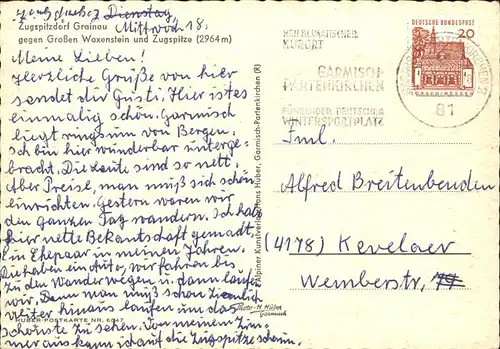 Zugspitzdorf Grainau
gegen Großen Waxenstein und Zugspitze (2964 m)
Dienstag,
Mittwoch 18.
Meine Lieben!
Herzliche Grüße von hier
sendet dir Gusti. Hier ist es
einmalig schön. Garmisch
liegt ringsum von Bergen.
Ich bin hier wunderbar unterge-
bracht. Die Leute sind so nett.
Aber Preise, man muß sich schön
einrichten. Gestern waren wir
den ganzen Tag wandern. Ich hab
hier nette Bekantschaft gemacht,
ein Ehepaar in meinen Jahren.
Die haben ein Auto, wir fahren bis
zu den Wanderwegen u. dann laufen
wir. Denn man muß schon ziemlich
weiter hinaus laufen um das
schönste zu sehen. Von meinem Zim-
mer aus kann ich auf die Zugspitze schaun.
HUBER-POSTKARTE NR. 6047
Foto-H. Huber
Garmisch
Alpiner Kunstverlag Hans Huber, Garmisch-Partenkirchen (R)
HEILKLIMATISCHER
KURORT
GARMISCH-
PARTENKIRCHEN
FÜHRENDER DEUTSCHER
WINTERSPORTPLATZ
81
DEUTSCHE BUNDESPOST
20
LORSCH/HESSEN
Fml.
Alfred Breitenbenden
(4178) Kevelaer
Wemberstr.